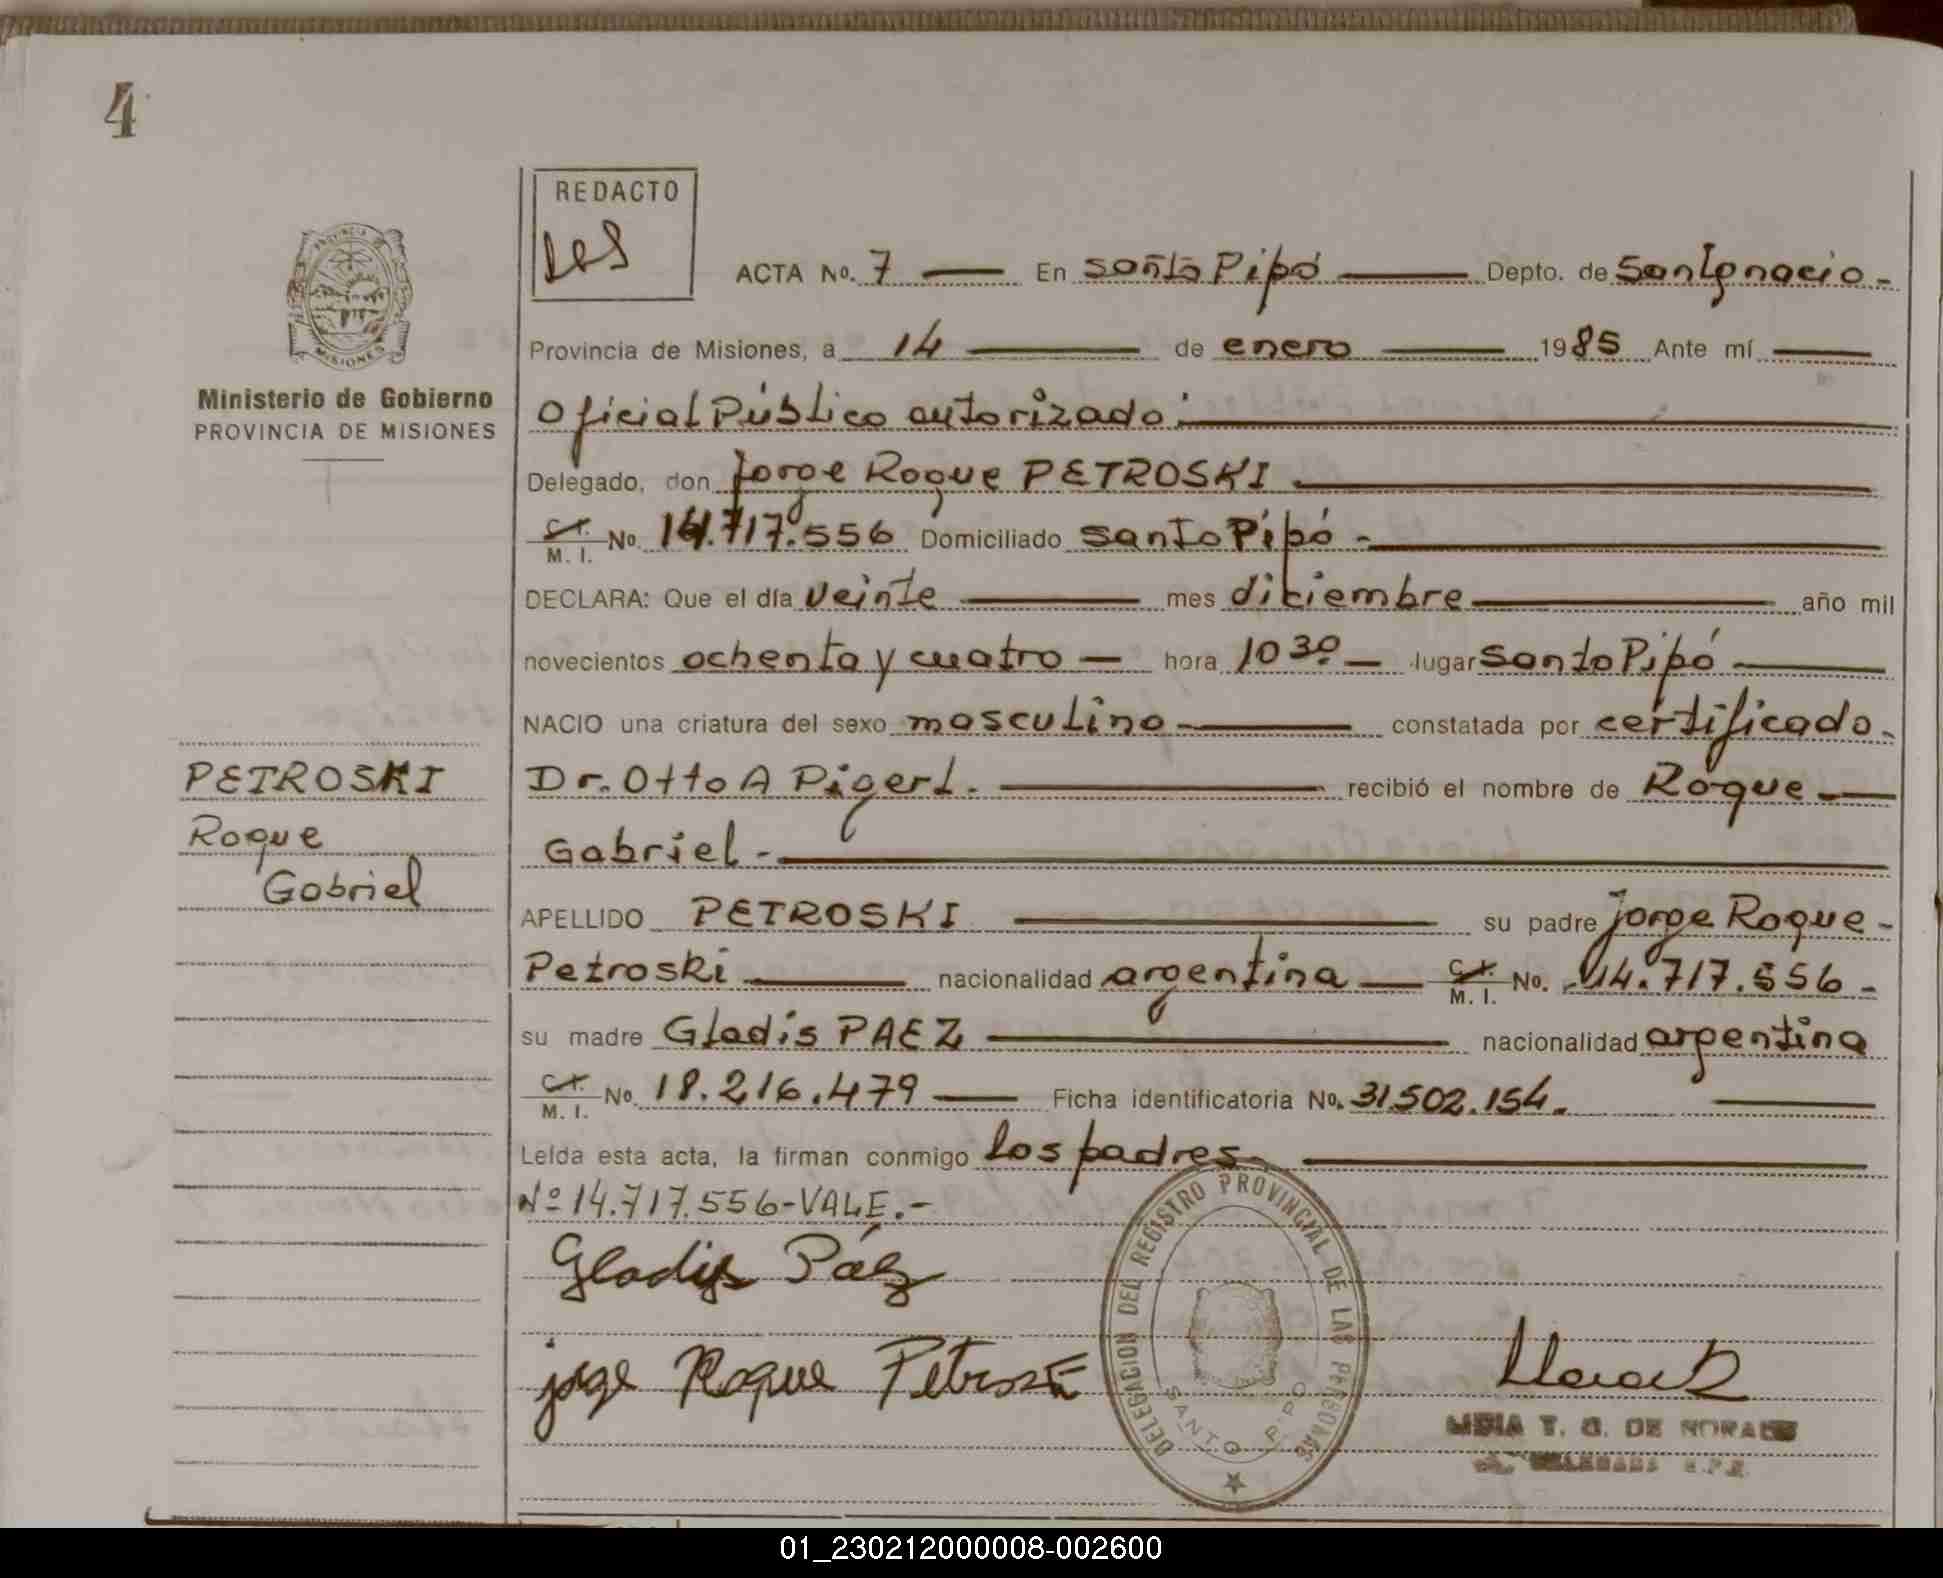 4
REDACTO
ACTA No. 7 En Santo Pipó Depto. de San Ignacio -
PROVINCIA DE
MISIONES
Ministerio de Gobierno
PROVINCIA DE MISIONES
Provincia de Misiones, a 14 de enero 1985 Ante mí
Oficial Público autorizado:
Delegado, don Jorge Roque PETROSKI
C. I. M. I. No. 14.717.556 Domiciliado Santo Pipó -
DECLARA: Que el día veinte mes diciembre año mil
novecientos ochenta y cuatro hora 10 30 lugar Santo Pipó
NACIO una criatura del sexo masculino - constatada por certificado.
Dr. Otto A Pigerl. recibió el nombre de Roque
Gabriel -
PETROSKI
Roque
Gabriel
APELLIDO PETROSKI su padre Jorge Roque -
Petroski nacionalidad argentina C. I. M. I. No. 14.717.556 -
su madre Gladis PAEZ nacionalidad argentina
C. I. M. I. No. 18.216.479 Ficha identificatoria No. 31.502.154.
Leída esta acta, la firman conmigo los padres.
Nº 14.717.556-VALE.-
Gladys Páez
jorge Roque Petroski
DELEGACION DEL REGISTRO PROVINCIAL DE LAS PERSONAS
SANTO PIPO
T. G. DE
01_230212000008-002600